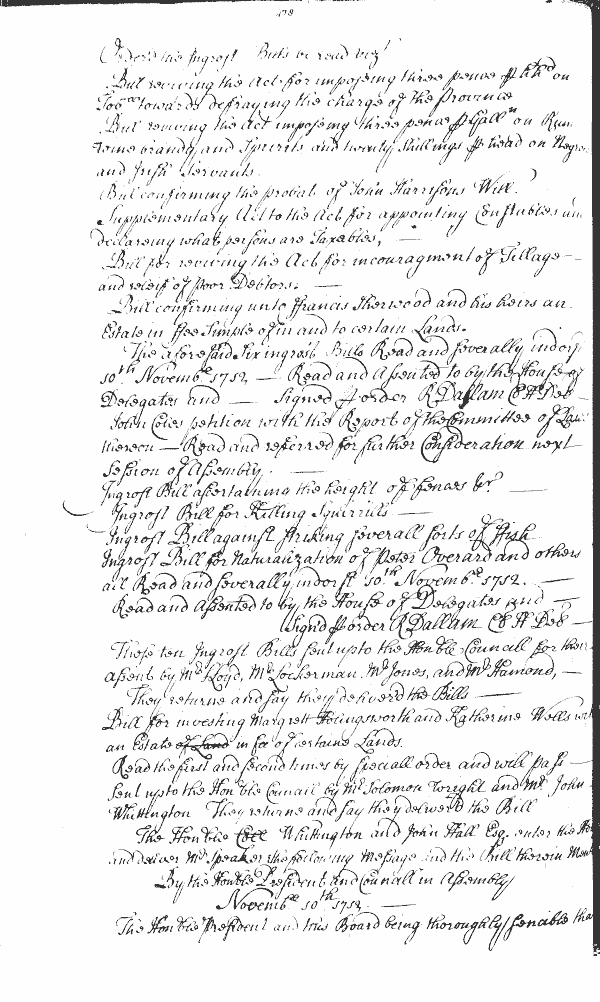 Order'd the Ingrost Bills be read vizt
Bill reviving the Act for imposing three pence p hhd on
Tobco towards defraying the charge of the Province
Bill reviving the Act imposing three pence p Galln on Rum
wine brandy and Spirits and twenty Shillings p head on Negro
and Irish Servants.
Bill confirming the probat of John Harrisons Will.
Supplementary Act to the Act for appointing Constables and
declareing what persons are Taxables, —
Bill for reviving the Act for incouragment of Tillage —
and releif of poor Debtors. —
Bill confirming unto Francis Sherwood and his heirs an
Estate in ffee Simple of in and to certain Lands.
The aforesaid Six ingrost Bills Read and severally indorst
10th Novembr 1712 — Read and Assented to by the House of
Delegates and — Signed p order R Dallam Cl H Del —
John Coles petition with the Report of the Committee of Laws
thereon — Read and referred for further Consideration next
Session of Assembly. —
Ingrost Bill ascertaining the height of fences &c. —
Ingrost Bill for Killing Squirrills —
Ingrost Bill against striking severall sorts of ffish
Ingrost Bill for Naturalization of Peter Overard and others
all Read and severally indorst 10th Novembr 1712. —
Read and Assented to by the House of Delegates and —
Signd p order R Dallam Cl H Del —
These ten Ingrost Bills sent up to the Honble Councill for their
assent by Mr Lloyd, Mr Lockerman Mr Jones, and Mr Hamond, —
They returne and say they deliverd the Bills —
Bill for investing Margrett Holingsworth and Katherine Wells with
an Estate of Land in fee of certaine Lands.
Read the first and second times by speciall order and will pass —
Sent up to the Honble Councill by Mr Solomon Wright and Mr. John
Whittington They returne and say they deliver'd the Bill
The Honble Coll Whittington and John Hall Esq. enter the House
and deliver Mr Speaker the following Message and the Bill therein Ment
By the Honble President and Councill in Assembly
Novembr 10th 1712. —
The Honble President and this Board being thoroughly sencible that